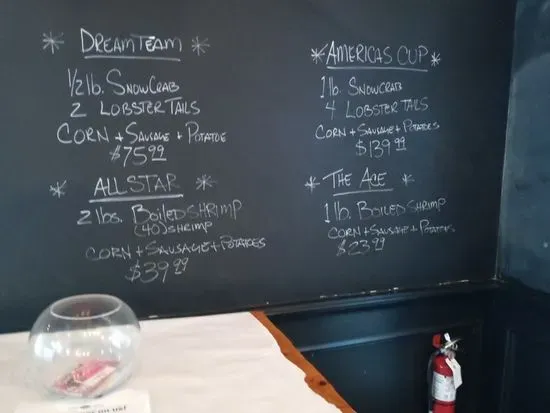 * DREAMTEAM *
1/2 lb. SNOWCRAB
2 LOBSTERTAILS
CORN + SAUSAGE + POTATOE
$75.99
* ALLSTAR *
2 lbs. BOILEDSHRIMP
(40) SHRIMP
CORN + SAUSAGE + POTATOES
$39.99
* AMERICAS CUP *
1 lb. SNOWCRAB
4 LOBSTERTAILS
CORN + SAUSAGE + POTATOES
$139.99
* THE ACE *
1 lb. BOILEDSHRIMP
CORN + SAUSAGE + POTATOES
$23.99